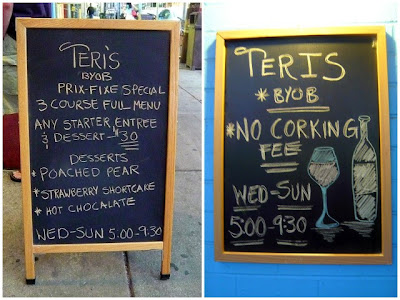 TERI'S
BYOB
PRIX-FIXE SPECIAL
3 COURSE FULL MENU
ANY STARTER, ENTREE
& DESSERT - $30
DESSERTS
* POACHED PEAR
* STRAWBERRY SHORTCAKE
* HOT CHOCALATE
WED-SUN 5:00-9:30
TERIS
* BYOB
* NO CORKING
FEE
WED-SUN
5:00-9:30